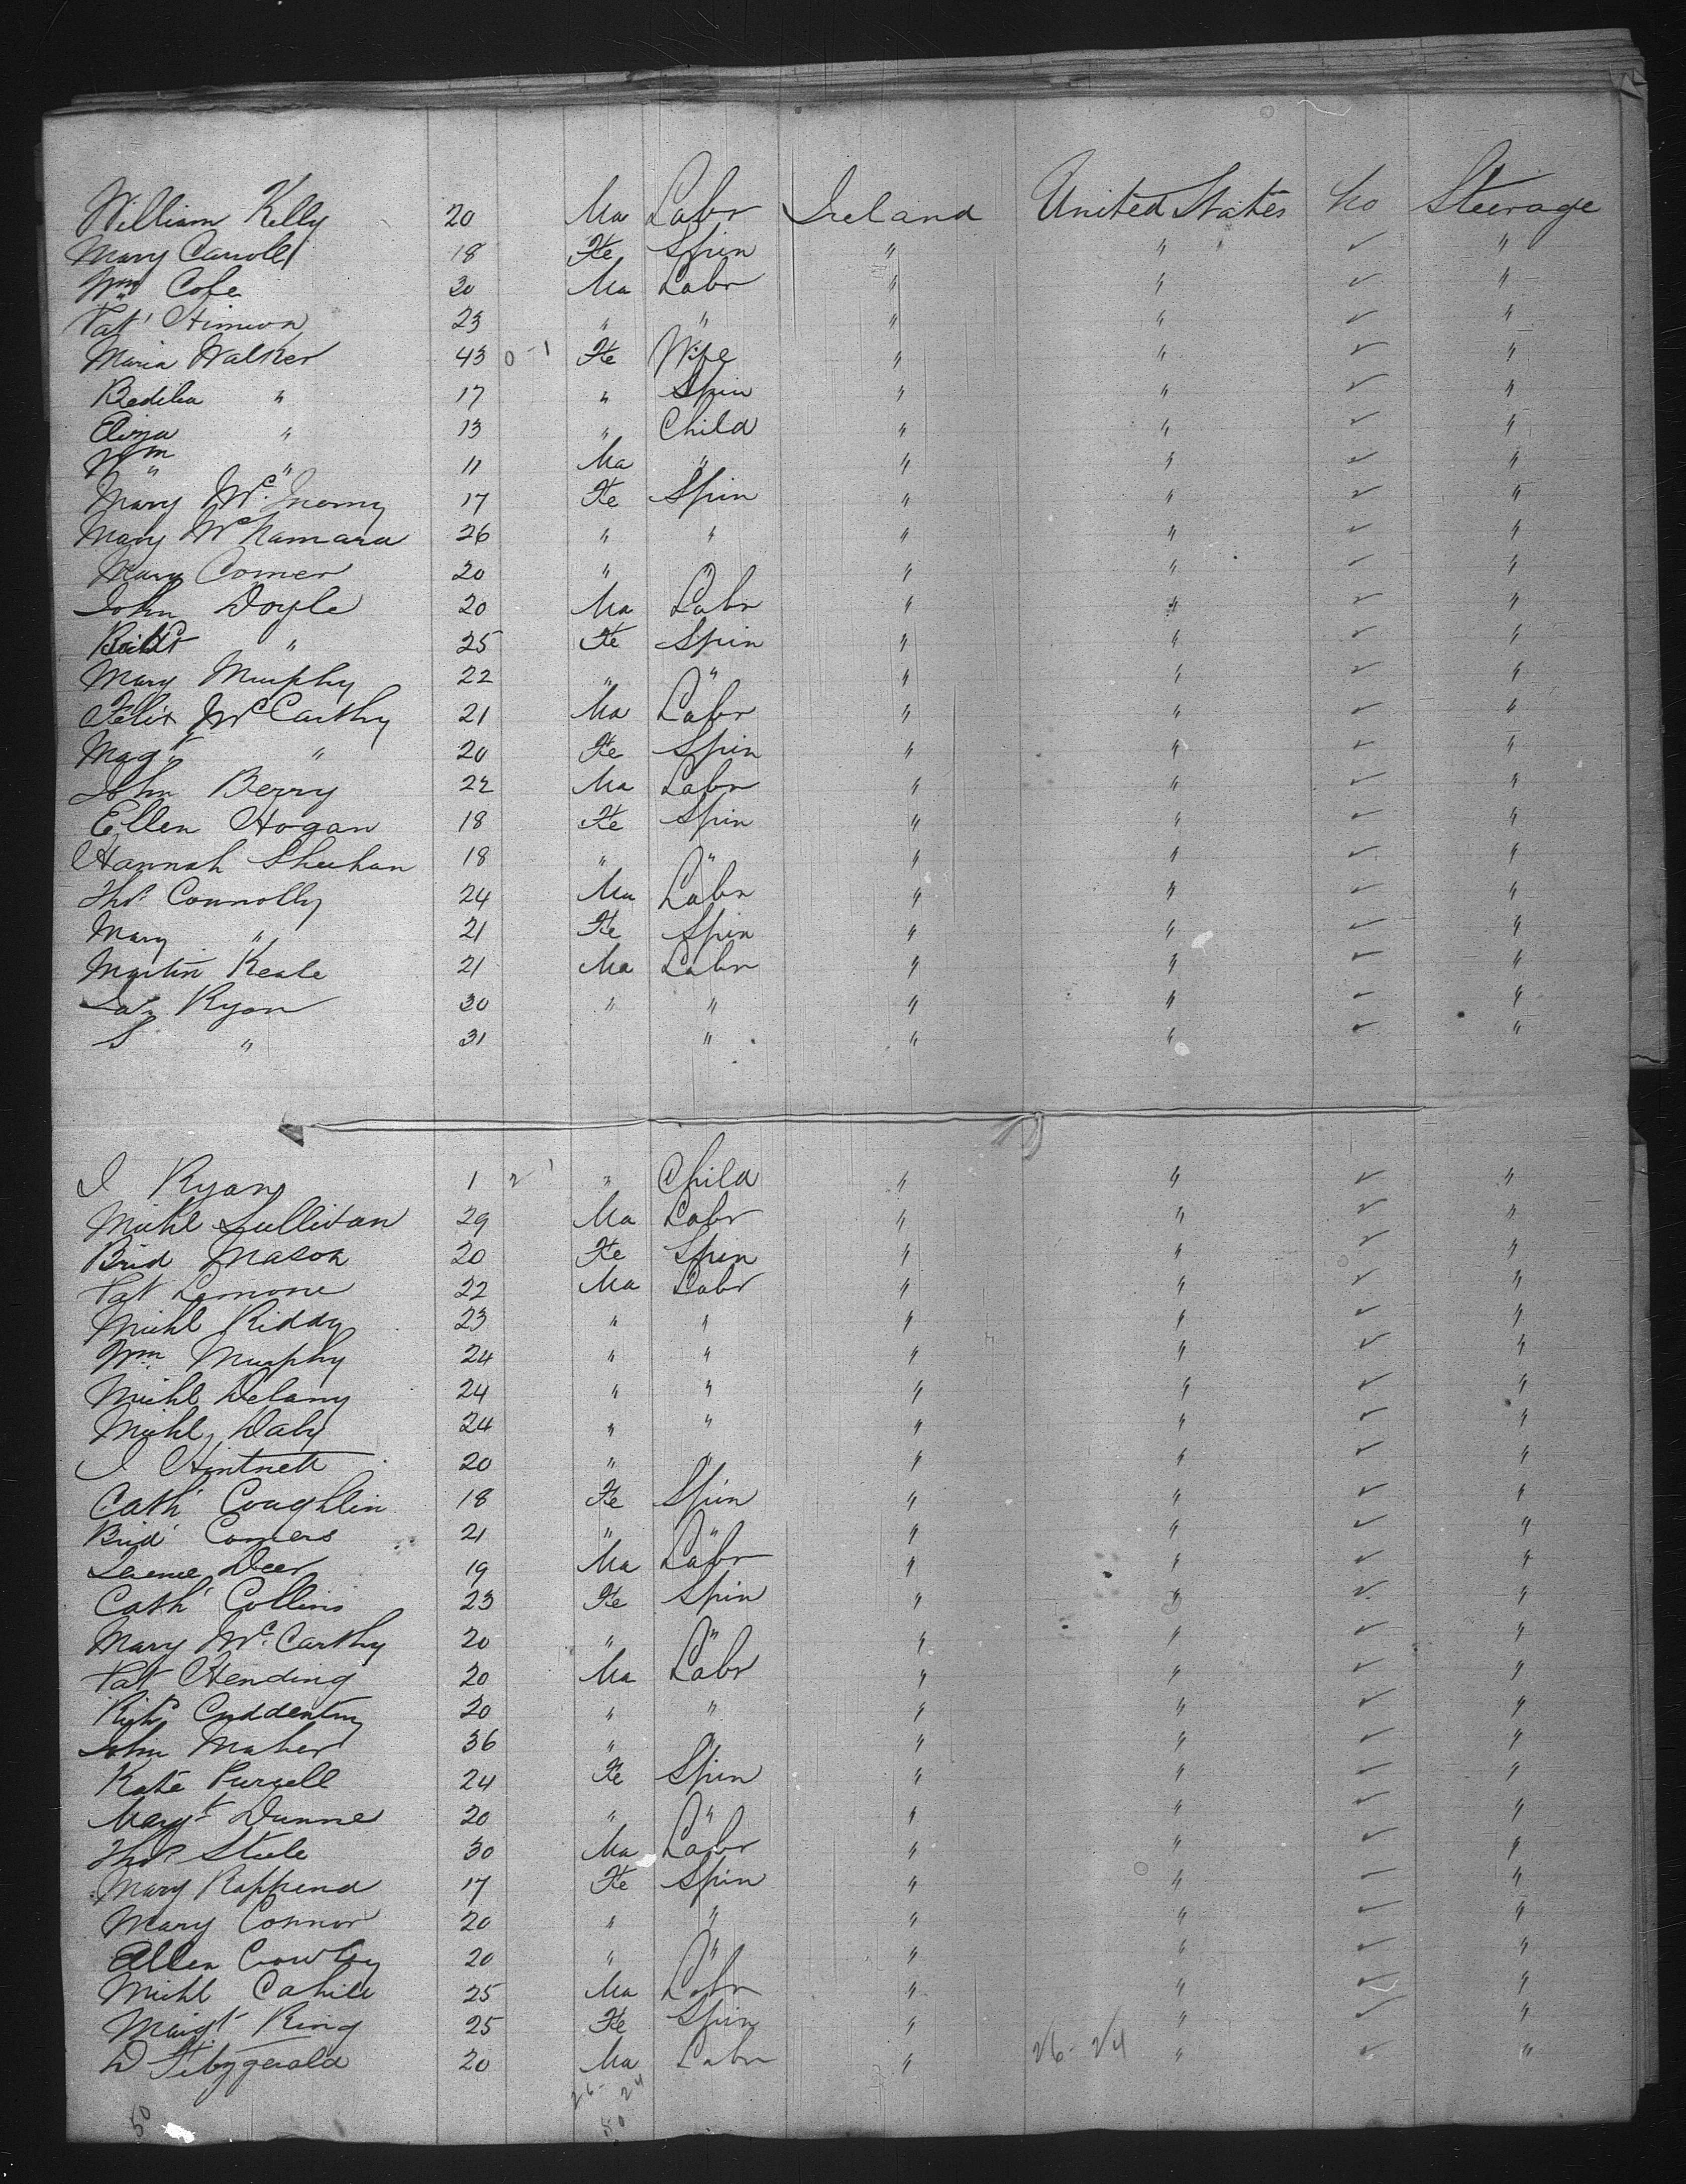 William Kelly 20 Ma Labr Ireland United States No Steerage
Mary Carroll 18 Fe Spin " " ✓ "
Wm Cofe 30 Ma Labr " " ✓ "
Pat 23 " " " " ✓ "
Maria Walker 43 0-1 Fe Wife " " ✓ "
Bedelia " 17 " Spin " " ✓ "
Eliza " 13 " Child " " ✓ "
Wm " 11 Ma " " " ✓ "
Mary 17 Fe Spin " " ✓ "
Mary McNamara 26 " " " " ✓ "
Mary Comer 20 " " " " ✓ "
John Doyle 20 Ma Labr " " ✓ "
" 25 Fe Spin " " ✓ "
Mary Murphy 22 " " " " ✓ "
Felix McCarthy 21 Ma Labr " " ✓ "
Magt " 20 Fe Spin " " ✓ "
John Berry 22 Ma Labr " " ✓ "
Ellen Hogan 18 Fe Spin " " ✓ "
Hannah Sheehan 18 " " " " ✓ "
Thos Connolly 24 Ma Labr " " ✓ "
Mary " 21 Fe Spin " " ✓ "
Martin Keale 21 Ma Labr " " ✓ "
Ryan 30 " " " " ✓ "
S " 31 " " " ✓ "
I Ryan 1 2-1 " Child " " ✓ "
Michl Sullivan 29 Ma Labr " " ✓ "
Brid Mason 20 Fe Spin " " ✓ "
Pat Lemone 22 Ma Labr " " ✓ "
Michl Riddy 23 " " " " ✓ "
Wm Murphy 24 " " " " ✓ "
Michl Delany 24 " " " " ✓ "
Michl Daly 24 " " " " ✓ "
I Hintnett 20 " " " " ✓ "
Cath Coughlin 18 Fe Spin " " ✓ "
Brid Comers 21 " " " " ✓ "
Deer 19 Ma Labr " " ✓ "
Cath Collins 23 Fe Spin " " ✓ "
Mary McCarthy 20 " " " " ✓ "
Pat Hending 20 Ma Labr " " ✓ "
Richd 20 " " " " ✓ "
John Maher 36 " " " " ✓ "
Kate Purzell 24 Fe Spin " " ✓ "
Magt Dunne 20 " " " " ✓ "
Thos Steele 30 Ma Labr " " ✓ "
Mary 17 Fe Spin " " ✓ "
Mary Connor 20 " " " " ✓ "
Ellen Crowley 20 " " " " ✓ "
Michl Cahill 25 Ma Labr " " ✓ "
Maigt King 25 Fe Spin " " ✓ "
D Fitzgerald 20 Ma Labr " 26-24 " ✓ "
26- 24
50 50